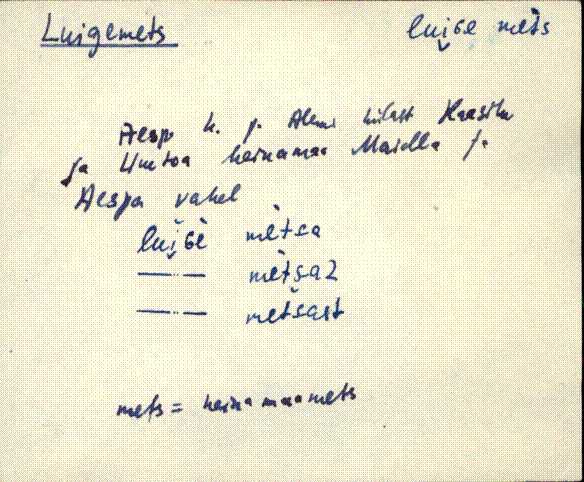 Luigemets
lui̯ɢe mèts
Aesp k. p. Alemi külast Kaasiku
ja Uuetoa heinamaa Maidla ja
Aespa vahel
lui̯ɢe mètsa
—··— mètsaz
—··— metsast
mets = heinamaamets